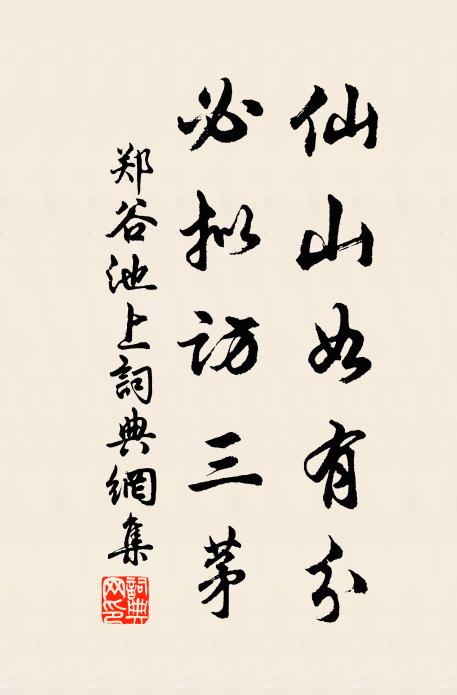 仙山如有分
必拟访三茅
郑谷池上詞典網集
詞典網印